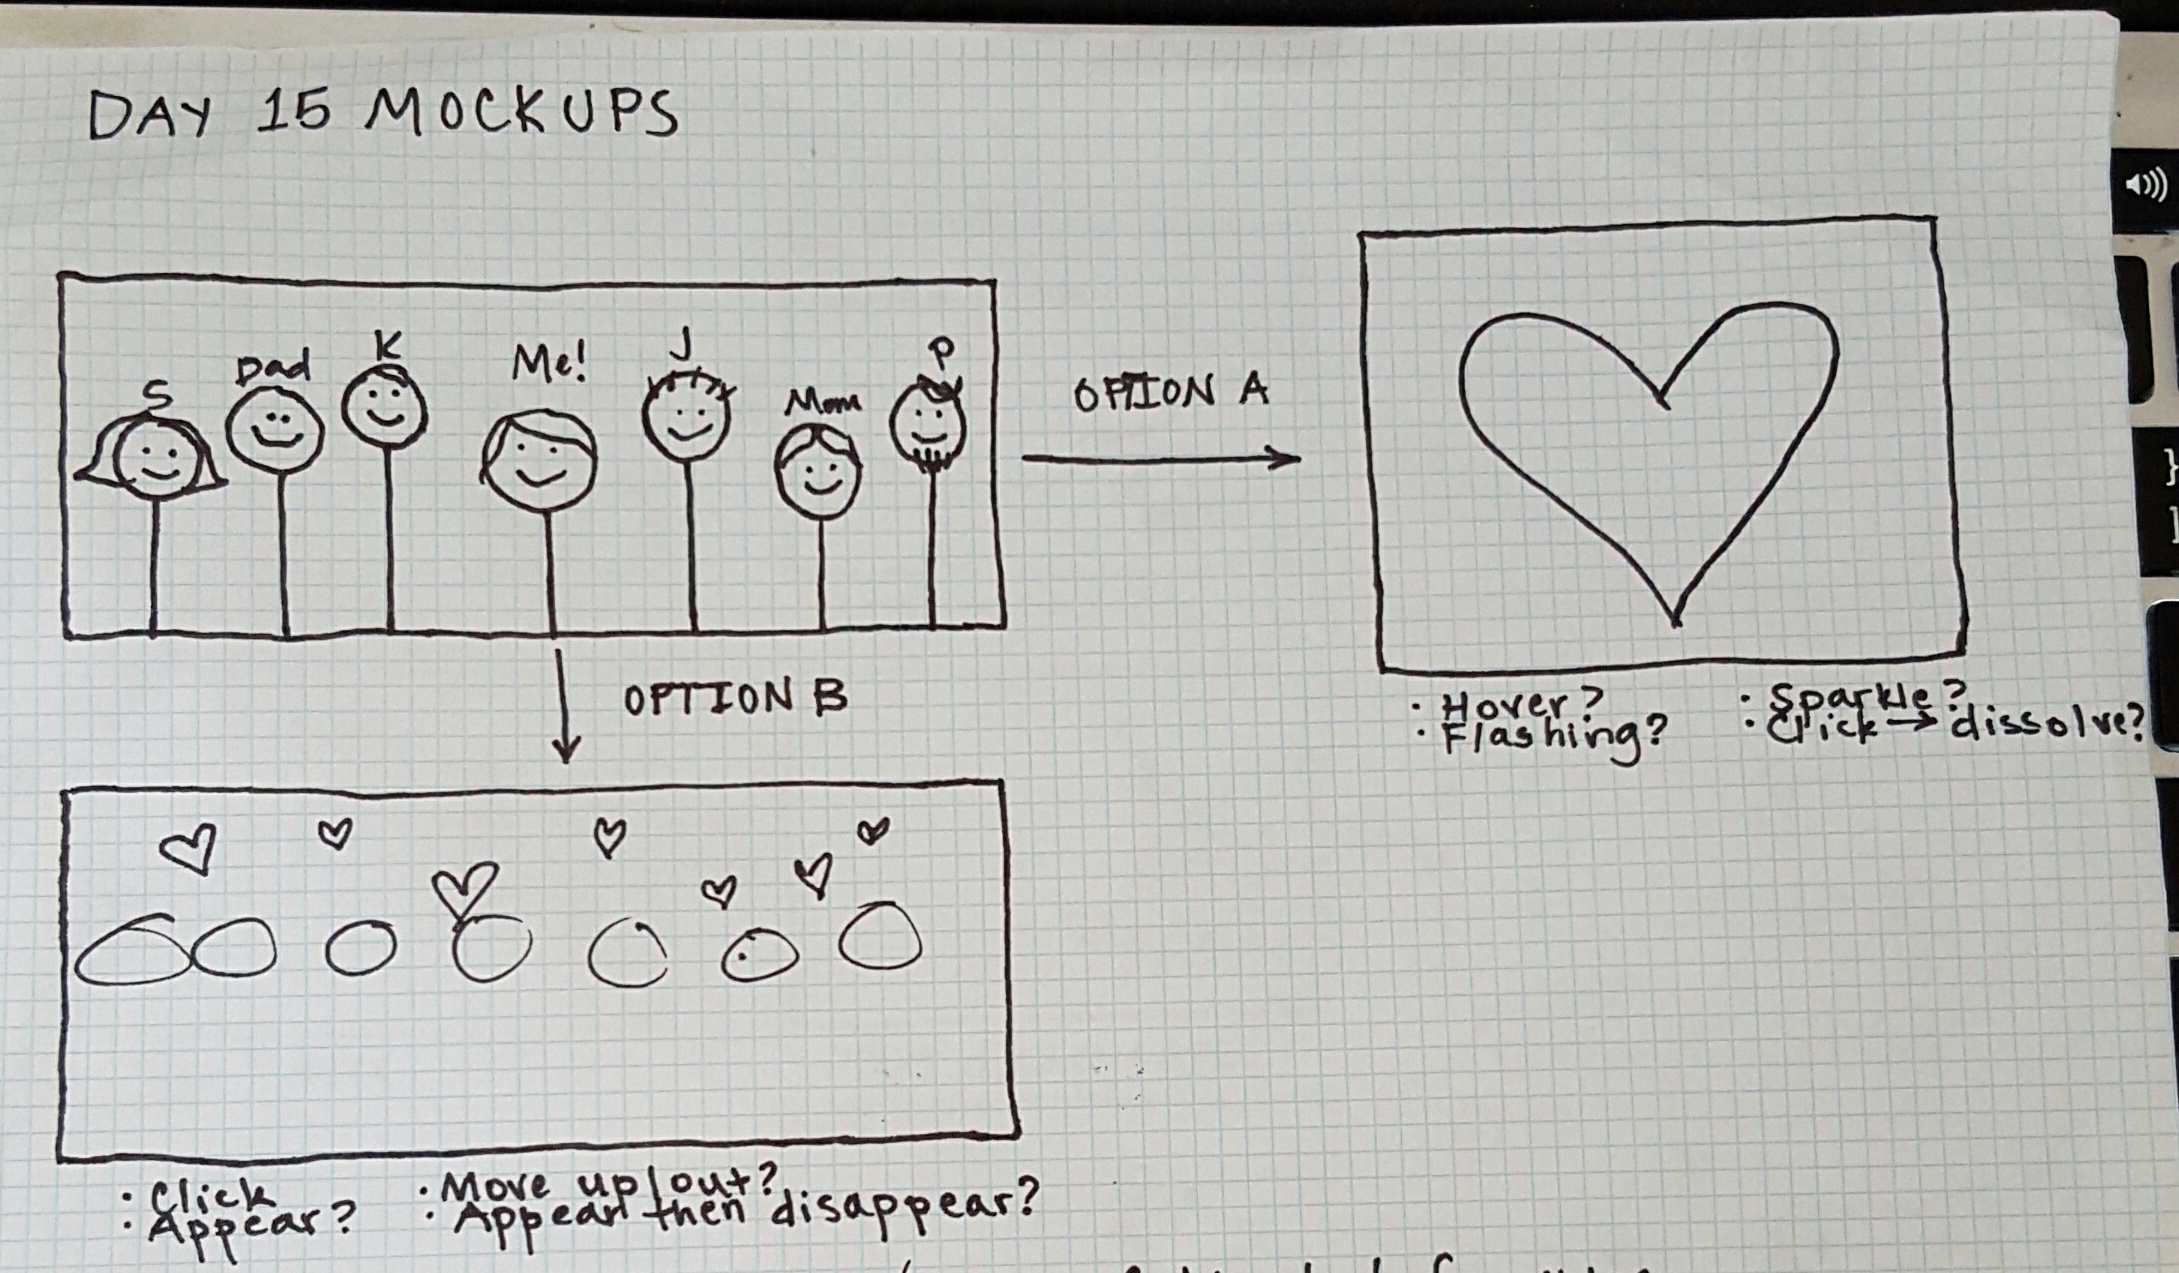 DAY 15 MOCKUPS
S Dad K Me! J Mom P
OPTION A
OPTION B
· Hover?
· Flashing?
· Sparkle?
· Click → dissolve?
· Click
· Appear?
· Move up/out?
· Appear then disappear?
}